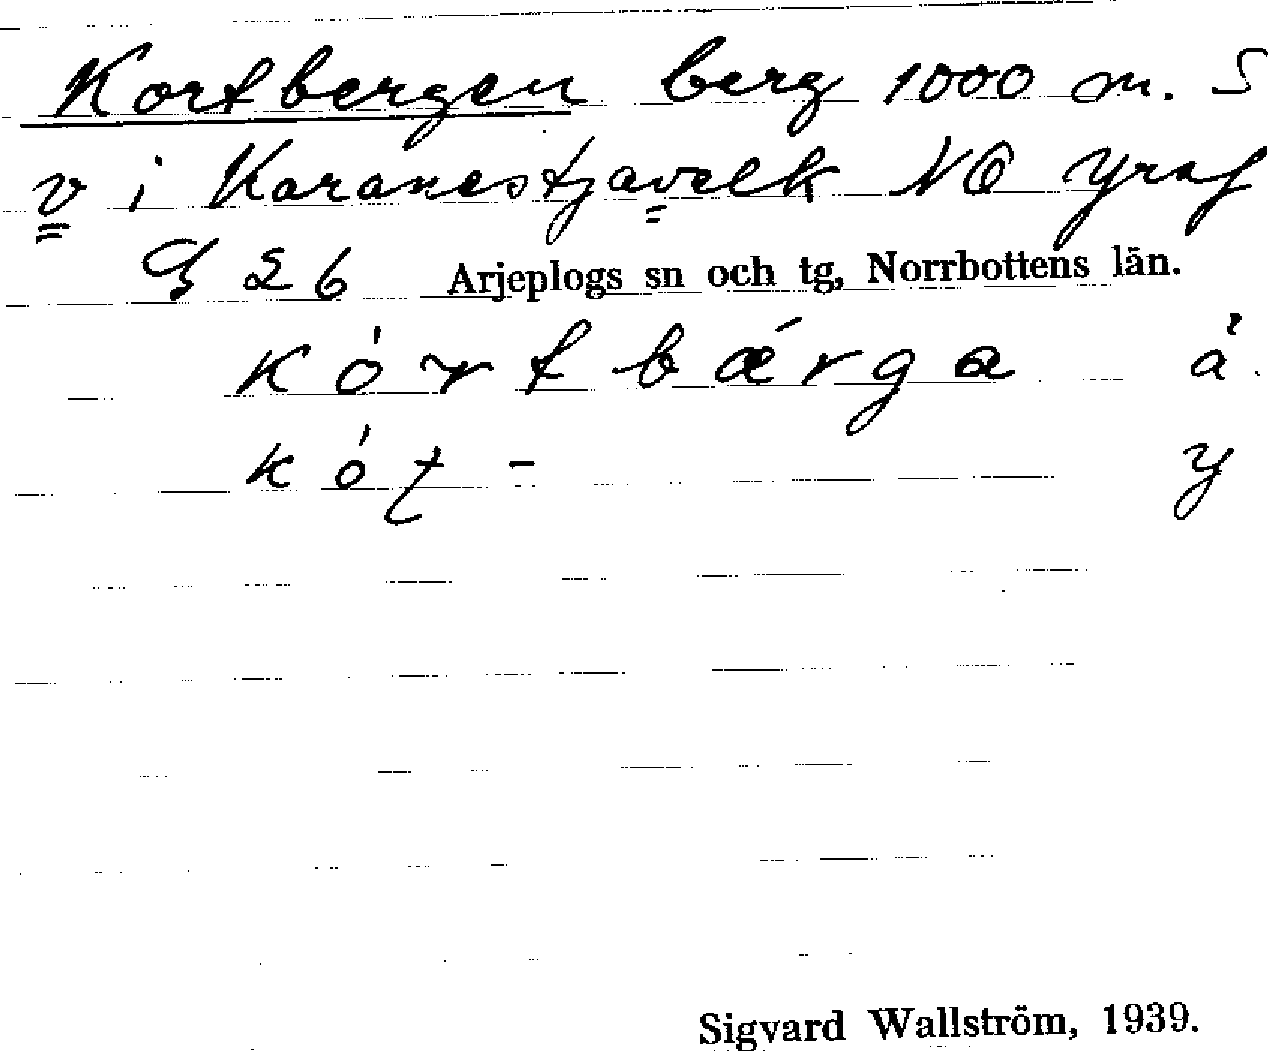 Kortbergen berg 1000 m. S
v i Karanestjavelk NO Yraf
G 26 Arjeplogs sn och tg, Norrbottens län.
kórtbǽrga å
kóț- y
Sigvard Wallström, 1939.